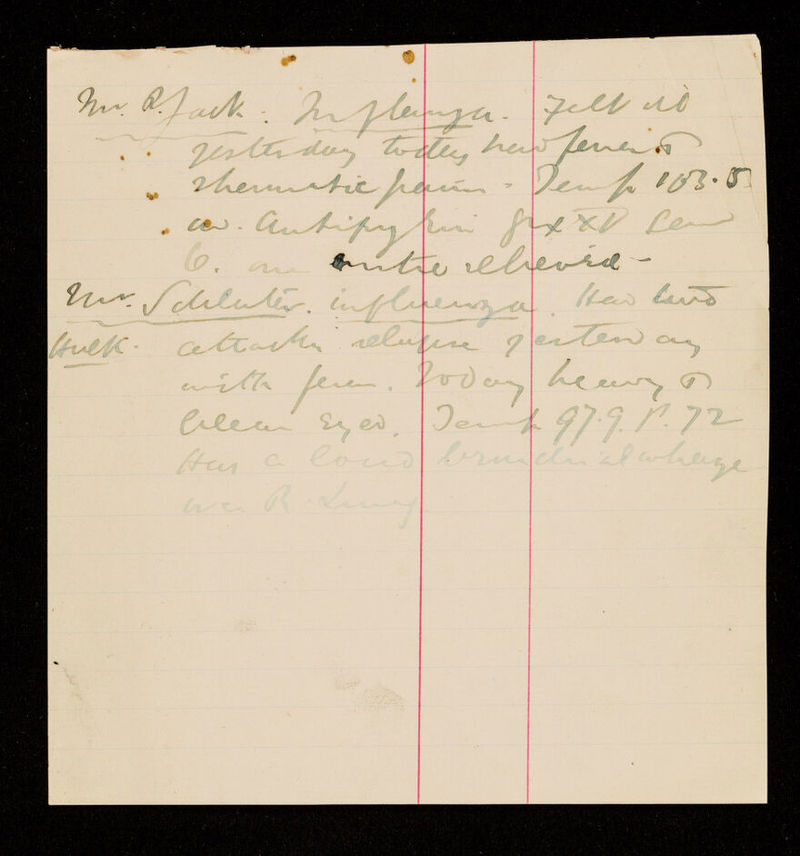 Mr. R. Jack. Influenza. Felt ill
yesterday today has fever &
rheumatic pains - Temp 103.5
Antipyrin gr XXV
6. relieved -
Mr. Schluter. influenza. Has had
Hulk. attack relapse yesterday
with fever. Today heavy &
blear eyed. Temp 97.9. P. 72
Has a loud bronchial wheeze
R. Lung